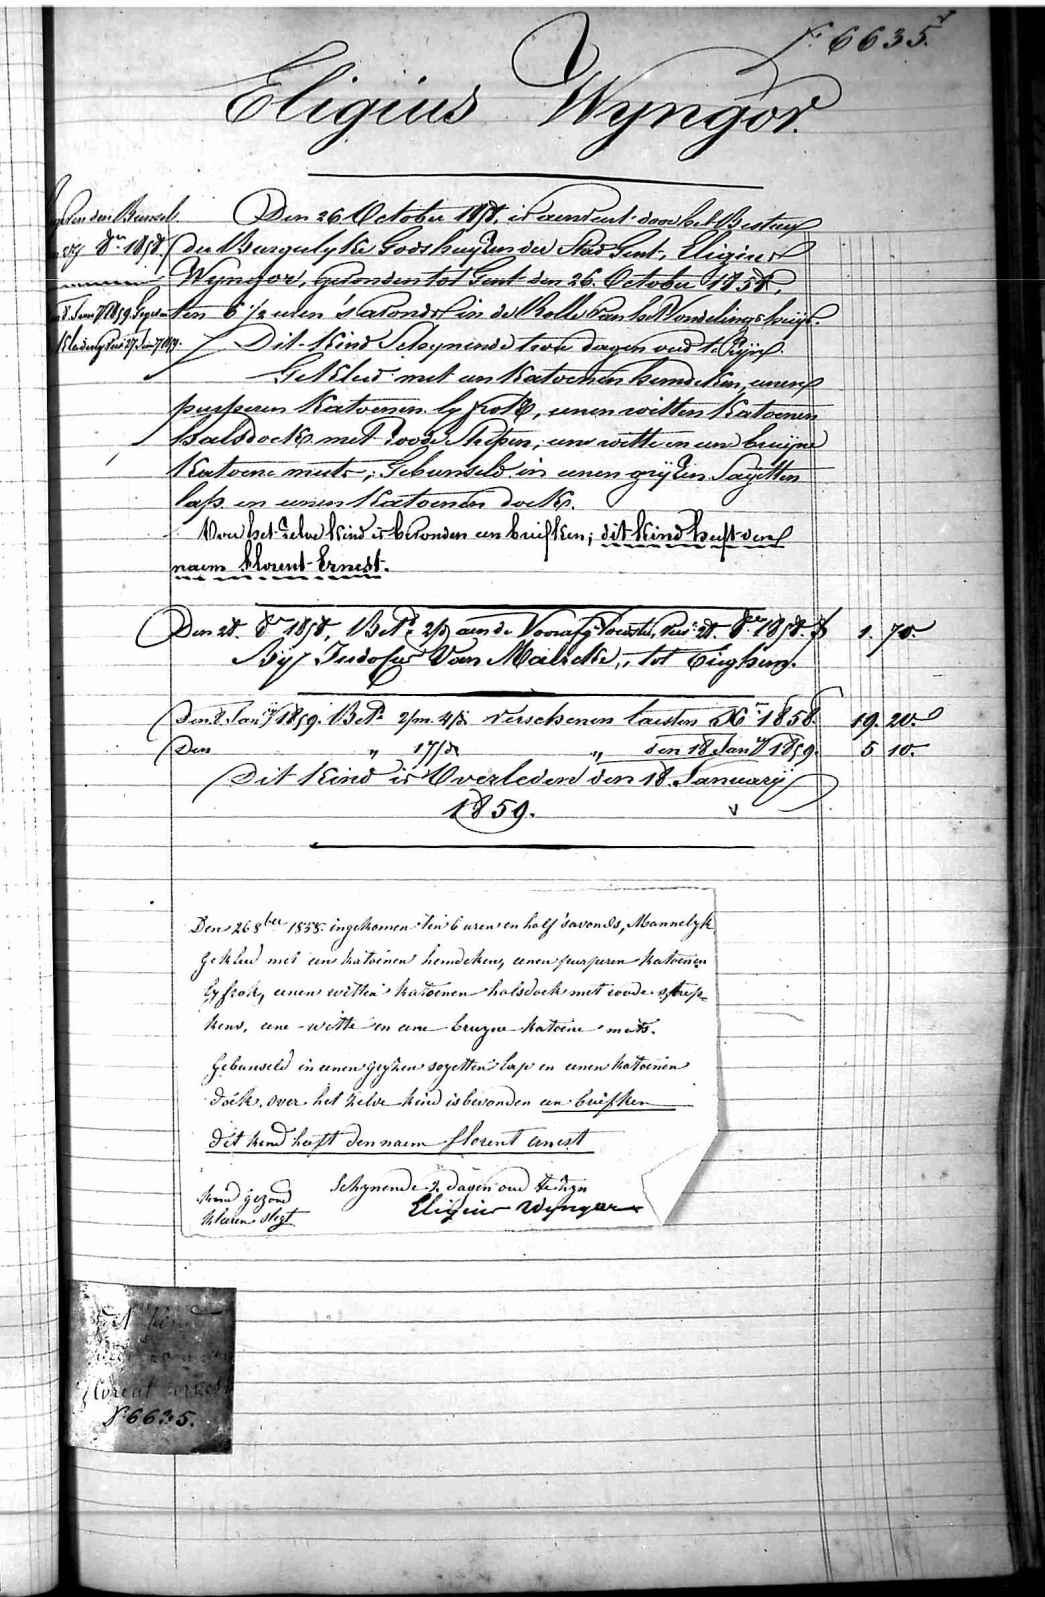 N. 6635.
Eligius Wyngor.
Den 26 October 1858. is aenveert door het Bestuer
der Burgerlyke Godshuyzen der Stad Gent, Eligius
Wyngor, gevonden tot Gent den 26. October 1858,
ten 6 1/2 uren 's avonds in de Rolle van het Vondelingshuijs.
Dit kind Schynende twee dagen oud te Zijn.
Gekleed met een katoenen hemdeken, eenen
purperen katoenen lyfrok, eenen witten katoenen
halsdoek met roode strepen, een witte en een bruijne
katoene muts; Gebunseld in eenen grijzen Sayetten
lap en eenen katoenen doek.
Over het zelve kind is bevonden een briefken; dit kind heeft den
naem Florent Ernest.
Den 28. 8er 1858, Betd 2/d aen de 28. 8er 1858. f 1. 70.
Bij Judocus Van Maelzeke, tot Eughem.
Den 8 Jany 1859. Betd 2/m 4/d verschenen laesten Xr 1858. 19. 20.
Den " 17/d " den 18 Jany 1859. 5 10.
Dit kind is Overleden den 18. January
1859.
Den 26 8ber 1858. ingekomen ten 6 uren en half savonds, Mannelyk
gekleed met een katoenen hemdeken, eenen purperen katoenen
lyfrok, eenen witten katoenen halsdoek met roode strep=
kens, eene witte en eene bruyne katoene muts.
Gebunseld in eenen gryzen sayetten lap en eenen katoenen
doek. over het zelve kind is bevonden een briefken
dit kend heeft den naem florent ernest
Schynende 2 dagen oud te zyn
kend gezond
kleeren slegt
Eligius Wyngor
dit kind
florent ernest
N. 6635.